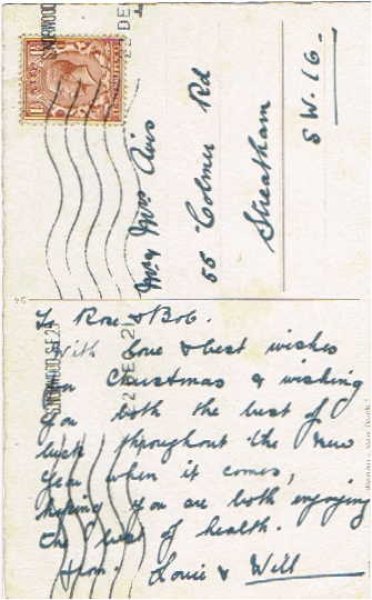 Mr & Mrs Avis
55 Colmer Rd
Streatham
S.W.16.
To Rose & Bob.
With love & best wishes
for Christmas & wishing
you both the best of
luck throughout the new
year when it comes,
hoping you are both enjoying
the best of health.
from Louie & Will
S.NORWOOD·S.E.25